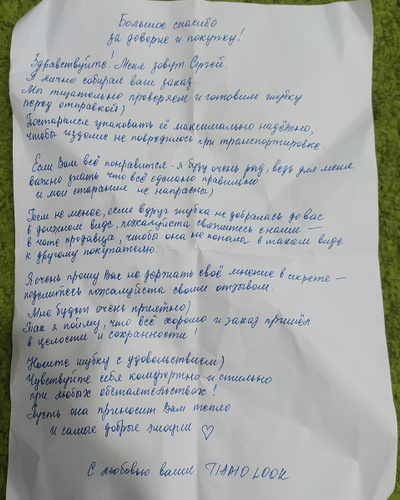 Большое спасибо
за доверие и покупку!
Здравствуйте! Меня зовут Сергей.
Я лично собирал ваш заказ.
Мы тщательно проверяем и готовим шубку
перед отправкой)
Постарался упаковать её максимально надёжно,
чтобы изделие не повредилось при транспортировке.
Если Вам всё понравится - я буду очень рад, ведь для меня
важно знать что всё сделано правильно
и мои старания не напрасны)
Тем не менее, если вдруг шубка не добралась до вас
в должном виде, пожалуйста свяжитесь с нами —
в чате продавца, чтобы она не попала в таком виде
к другому покупателю.
Я очень прошу Вас не держать своё мнение в секрете —
поделитесь пожалуйста своим отзывом.
Мне будет очень приятно)
Так я пойму, что всё хорошо и заказ пришёл
в целости и сохранности!
Носите шубку с удовольствием)
Чувствуйте себя комфортно и стильно
при любых обстоятельствах!
Пусть она приносит Вам тепло
и самые добрые эмоции ♡
С любовью ваши TIAMO LOOK